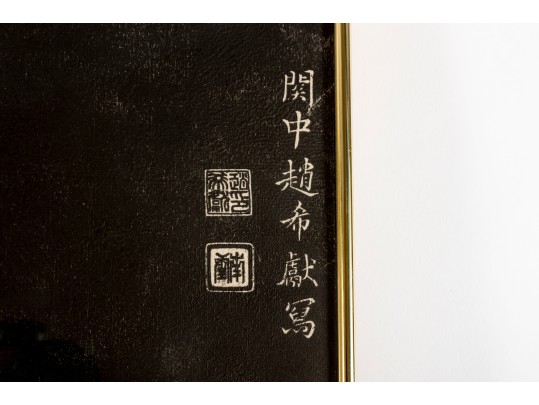 関中趙希獻冩